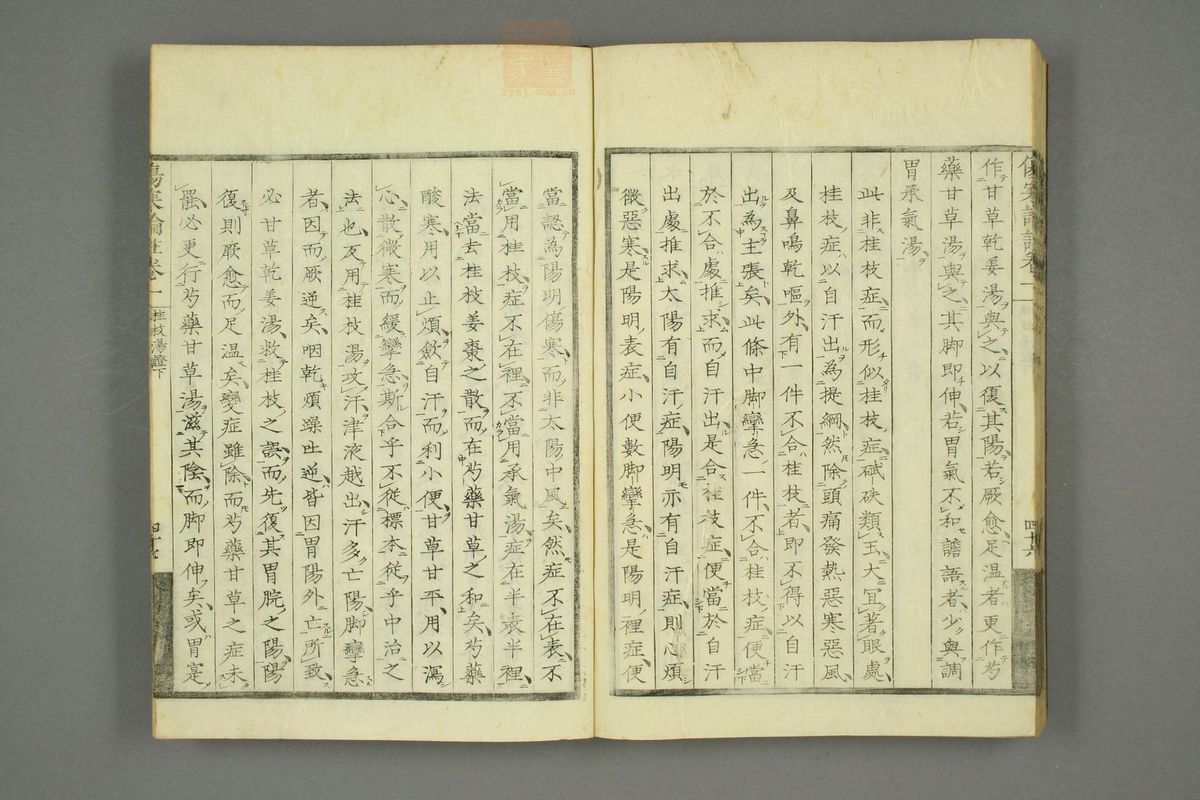 作甘草乾姜湯與之以復其陽若厥愈足温者更作芍
藥甘草湯與之其脚即伸若胃氣不和譫語者少與調
胃承氣湯
此非桂枝症而形似桂枝症碔砆類玉大宜著眼處
桂枝症以自汗出為提綱然除頭痛發熱惡寒惡風
及鼻鳴乾嘔外有一件不合桂枝者即不得以自汗
出為主張矣此條中脚攣急一件不合桂枝症便當
於不合處推求而自汗出是合桂枝症便當於自汗
出處推求太陽有自汗症陽明亦有自汗症則心煩
微惡寒是陽明表症小便數脚攣急是陽明裡症便
當認為陽明傷寒而非太陽中風矣然症不在表不
當用桂枝症不在裡不當用承氣湯症在半表半裡
法當去桂枝姜棗之散而在芍藥甘草之和矣芍藥
酸寒用以止煩斂自汗而利小便甘草甘平用以瀉
心散微寒而緩攣急斯合乎不從標本從乎中治之
法也反用桂枝湯攻汗津液越出汗多亡陽脚攣急
者因而厥逆矣咽乾煩躁吐逆皆因胃陽外亡所致
必甘草乾姜湯救桂枝之誤而先復其胃脘之陽陽
復則厥愈而足温矣變症雖除而芍藥甘草之症未
罷必更行芍藥甘草湯滋其陰而脚即伸矣或胃寔
傷寒論註卷二
桂枝湯證下
四十七
四十六
zysj.com.cn